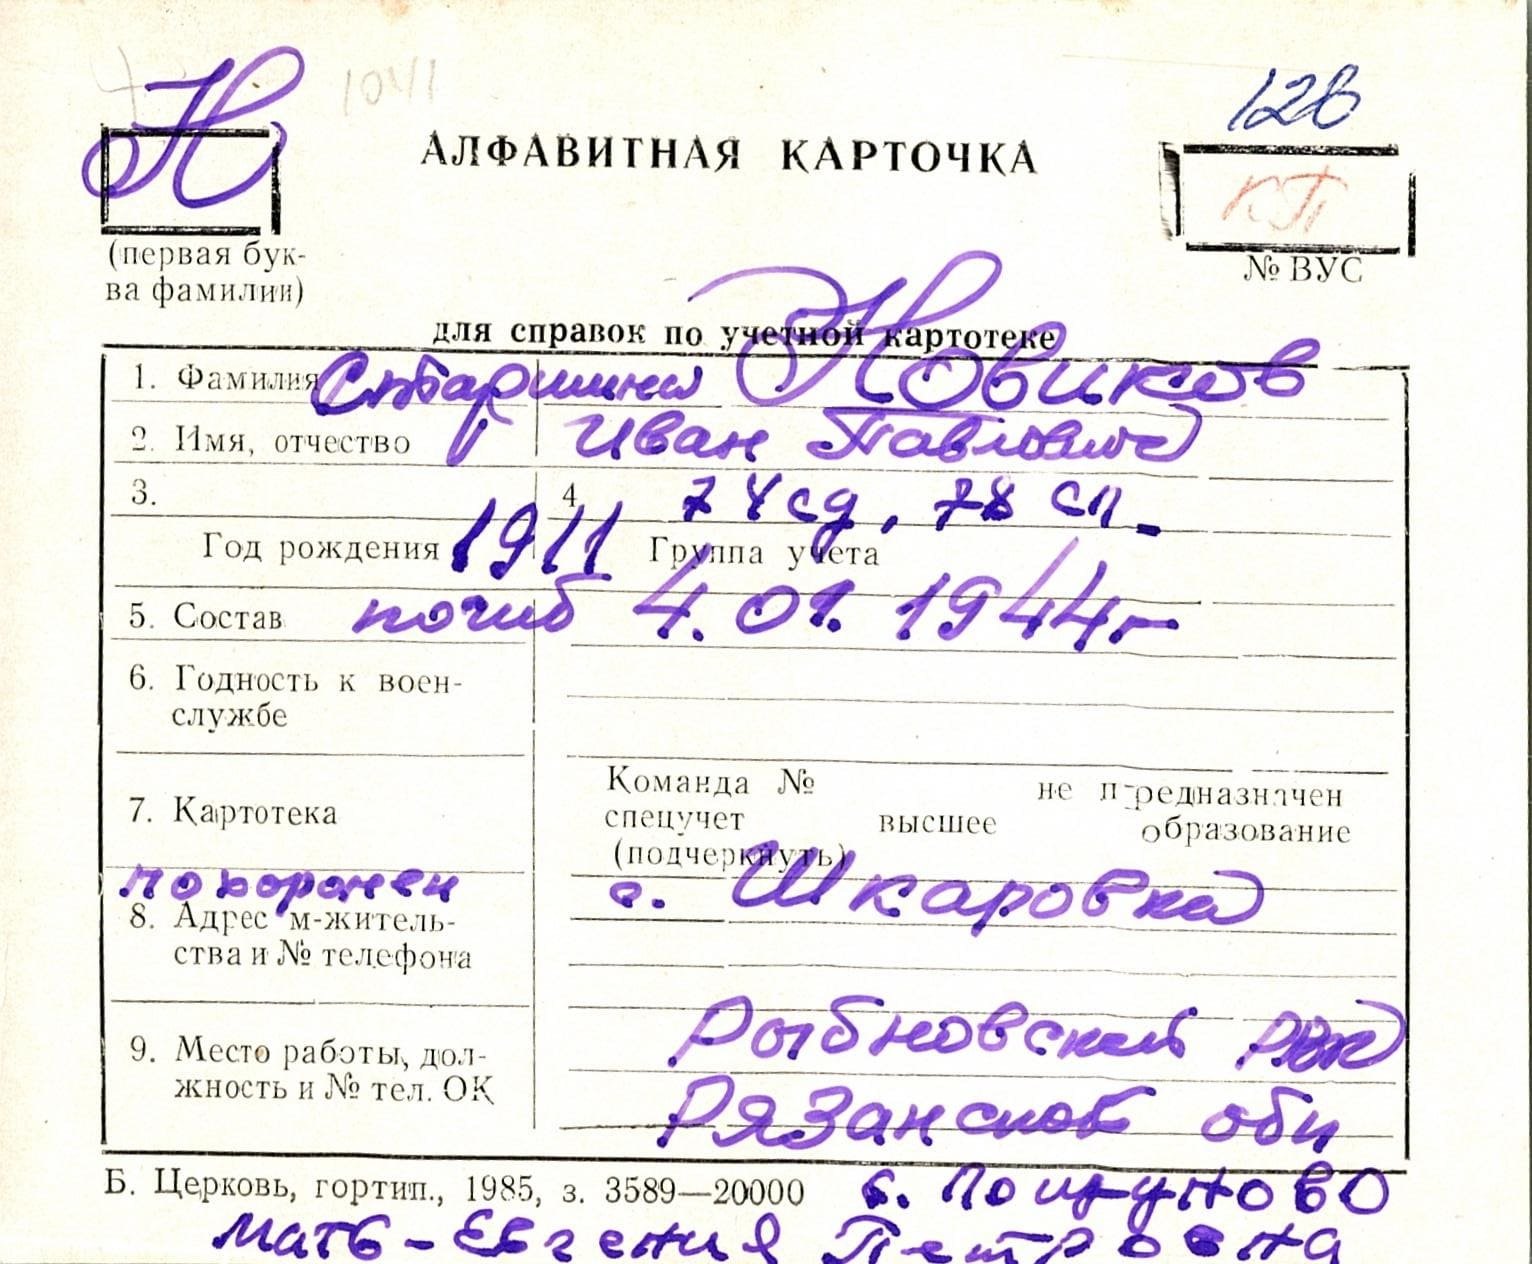 Н 1041 128
АЛФАВИТНАЯ КАРТОЧКА
КП
(первая бук-
ва фамилии)
№ ВУС
для справок по учетной картотеке
1. Фамилия Старшина Новиков
2. Имя, отчество Иван Павлович
3. 4 74 сд, 78 сп.
Год рождения 1911 Группа учета
5. Состав погиб 4.01.1944г
6. Годность к воен-
службе
Команда № не предназначен
7. Картотека спецучет высшее образование
(подчеркнуть)
похоронен с. Шкаровка
8. Адрес м-житель-
ства и № телефона
Рыбновский РВК
9. Место работы, дол-
жность и № тел. ОК
Рязанской обл
Б. Церковь, гортип., 1985, з. 3589—20000 с.
мать - Евгения Петровна